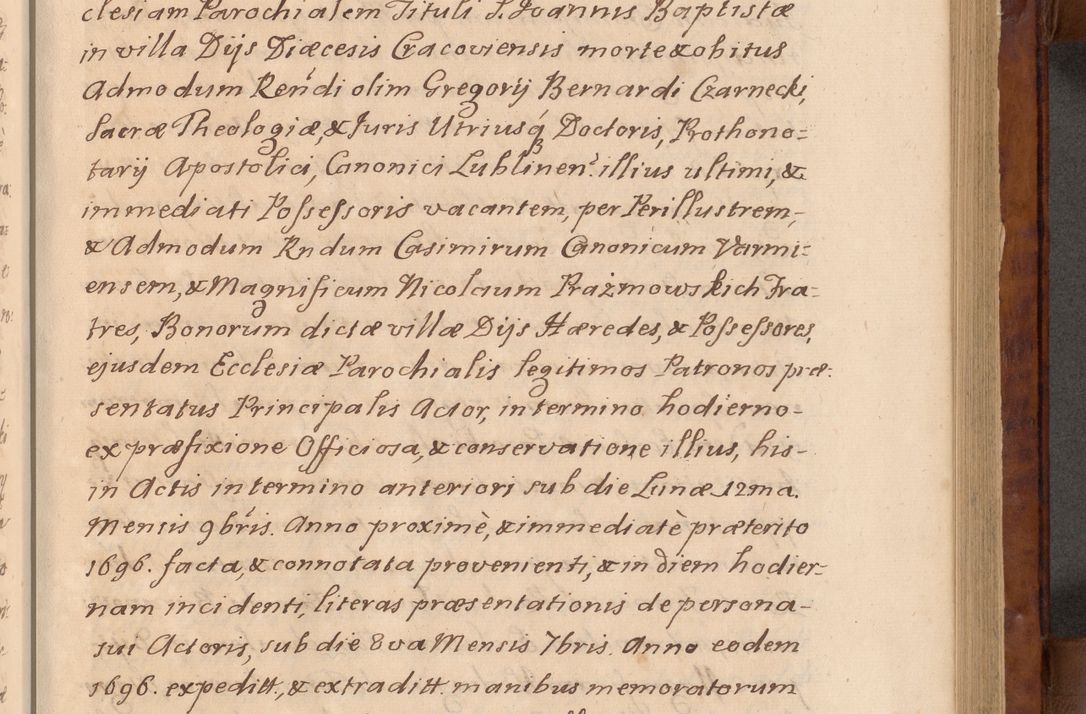 clesiam Parochialem Tituli S. Joannis Baptistæ
in villa Dijs Diæcesis Cracoviensis morte & obitus
Admodum Rendi olim Gregorij Bernardi Czarnecki,
Sacræ Theologiæ, & Juris Utriusq́ Doctoris, Prothono=
tarij Apostolici, Canonici Lublinen. illius ultimi, &
immediati Possessoris vacantem, per Perillustrem,
& Admodum Rndum Casimirum Canonicum Varmi=
ensem, & Magnificum Nicolaum Prażmowskich Fra=
tres, Bonorum dictæ villæ Dijs Hæredes, & Possessores,
ejusdem Ecclesiæ Parochialis legitimos Patronos præ=
sentatus Principalis Actor, in termino hodierno
ex præfixione Officiosa, & conservatione illius, his
in Actis in termino anteriori sub die Lunæ 12ma.
Mensis 9bris. Anno proximè, & immediatè præterito
1696. facta, & connotata provenienti, & in diem hodier=
nam incidenti, literas præsentationis de persona
sui Actoris, sub die 8va Mensis 7bris. Anno eodem
1696. expeditt, & extraditt. manibus memoratorum